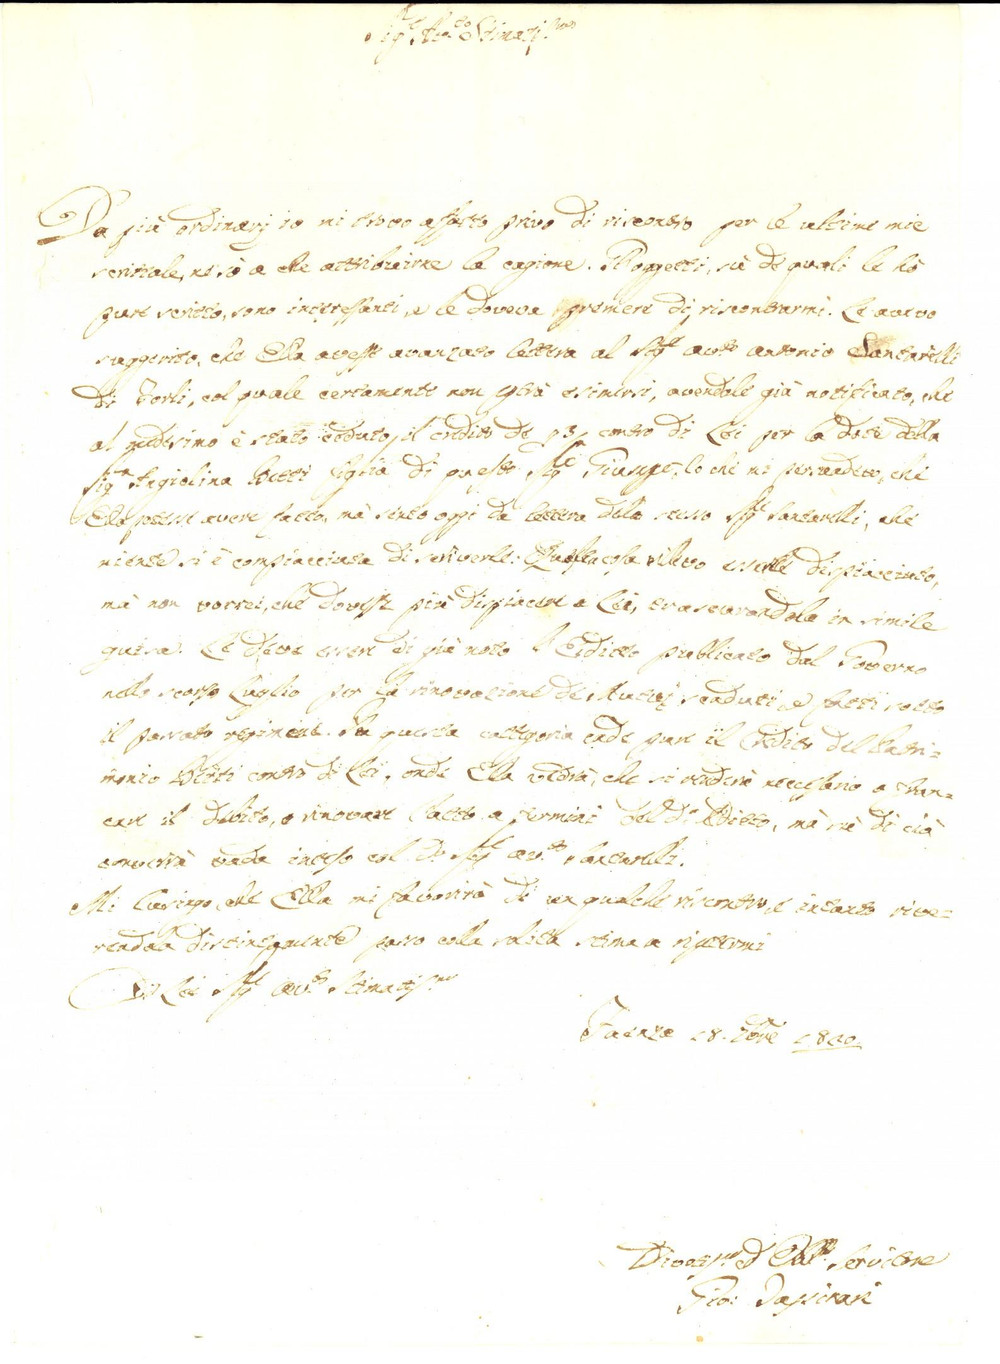 Sig.re Avv.to Stimatis.mo
Da più ordinarj io mi trovo affatto privo di riscontro per le ultime mie
scrittale, ne sò a che attribuirne la cagione. I soggetti, sù de quali le hò
pure scritto, sono interessanti, e le doveva premere di riscontrarmi. Le avevo
suggerito, che Ella avesse avanzato lettera al Sig.r Avv.to Antonio Santarelli
di Forlì, col quale certamente non potrà esimersi, avendole già notificato, che
al medesimo è stato ceduto il credito de contro di Lei per la dote della
Sig.ra Angiolina Bitti figlia di questo Sig.re Giuseppe, lo che mi persuadeva, che
Ella potesse avere fatto, mà sento oggi da lettera dello stesso Sig.r Santarelli, che
niente si è compiacciuta di scriverle: Questa cosa rilevo esserle dispiacciuto,
mà non vorrei, che dovesse più dispiacere a Lei, trascurandola in simile
guisa. Le deve essere di già noto l'Editto publicato dal Governo
nello scorso Luglio per la rinovazione de Mutui scaduti, e fatti sotto
il passato regime. In questa cattegoria cade pure il Credito del Patri=
monio Bitti contro di Lei, onde Ella vedrà, che si renderà necessario o dran=
care il debito, o rinovare l'atto a termini del d.o Editto, mà sù di ciò
converrà vada inteso col d.o Sig.r Avv.to Santarelli.
Mi lusingo, che Ella mi favorirà di un qualche riscontro, e intanto rive=
rendola distintamente passo colla solita stima a ripetermi
Di Lei Sig.r Avv.to Stimatis.mo
Faenza 18. 1820
Divotis.mo ed Obb.mo Servitore
Gio: